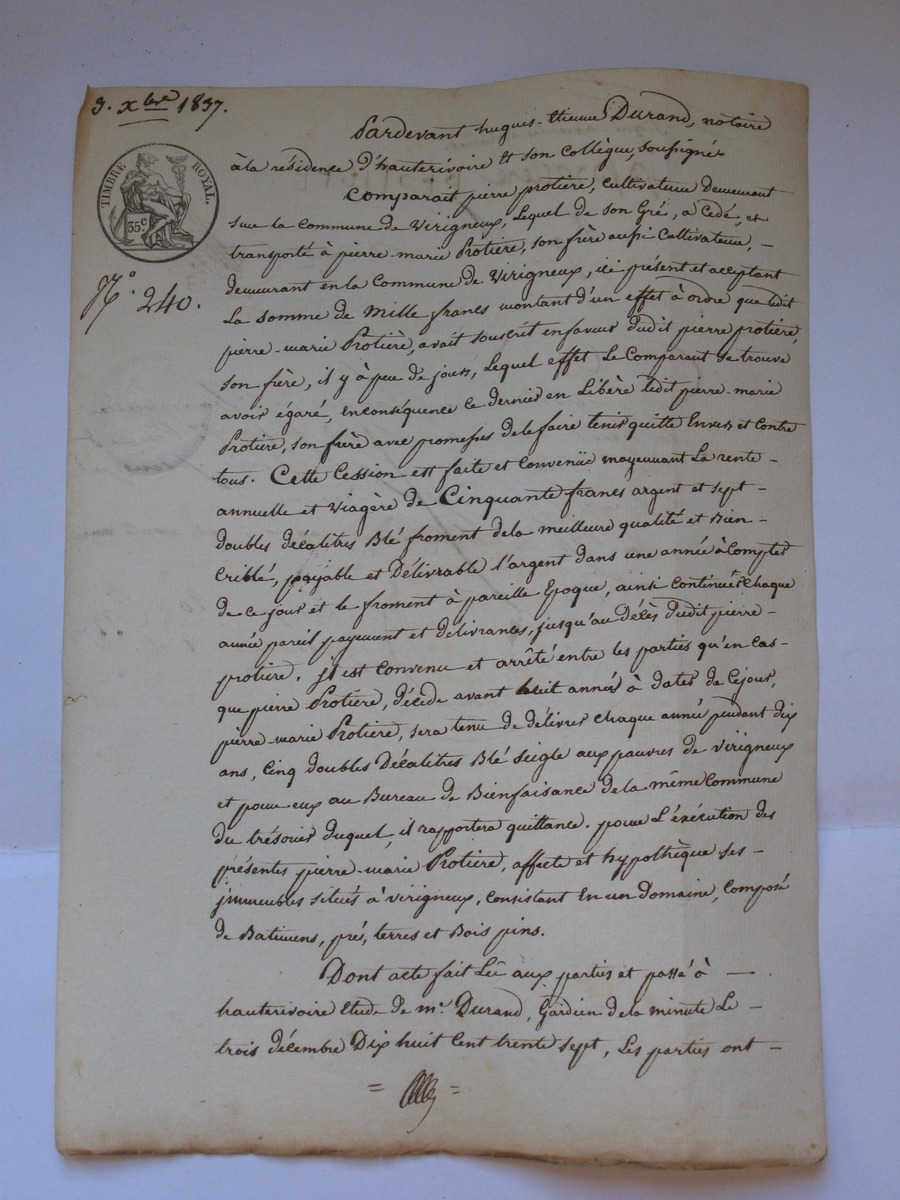 3. xbre 1837.
TIMBRE ROYAL.
35.c
N.° 240.
Pardevant hugues-Etienne Durand, notaire
à la résidence d'hauterivoire et son collègue, soussignés
Comparait pierre protière, cultivateur demeurant
sur la commune de Virigneux, Lequel de son Gré, a cédé, et
transporté à pierre-marie Protière, son frère aussi cultivateur, -
demeurant en la commune de Virigneux, ici présent et acceptant
La somme de Mille francs montant d'un effet à ordre que ledit
pierre-marie Protière, avait souscrit en faveur dudit pierre protière,
son frère, il y à peu de jours, Lequel effet Le Comparant se trouve
avoir égaré, en conséquence ce dernier en Libère ledit pierre-marie
Protière, son frère avec promesses de le faire tenir quitte Envers et Contre
tous. Cette Cession est faite et convenüe moyennant La rente -
annuelle et Viagère de Cinquante francs argent et sept -
doubles décalitres Blé froment de la meilleure qualité et Bien -
Criblé, payable et Délivrable l'argent dans une année à Compter
de ce jour et le froment à pareille Epoque, ainsi continuer chaque
année pareil payement et délivrances, jusqu'au décès dudit pierre-
protière. il est convenu et arrêté entre les parties qu'en cas-
que pierre Protière, décède avant huit années à dater de Cejour,
pierre-marie Protière, sera tenu de délivrer chaque année pendant dix
ans, Cinq doubles Décalitres Blé seigle aux pauvres de Virigneux
et pour eux au Bureau de Bienfaisance de la même Commune
du trésorier duquel, il rapportera quittance. pour L'éxécution des
présentes pierre-marie Protière, affecte et hypothèque ses-
immeubles situés à virigneux, consistant En un Domaine, composé
de Batimens, prés, terres et Bois pins.
Dont acte fait Lû aux parties et passé à -
hauterivoire Etude de m.e Durand, Gardien de la minute Le -
trois décembre Dix huit Cent trente sept, Les parties ont -